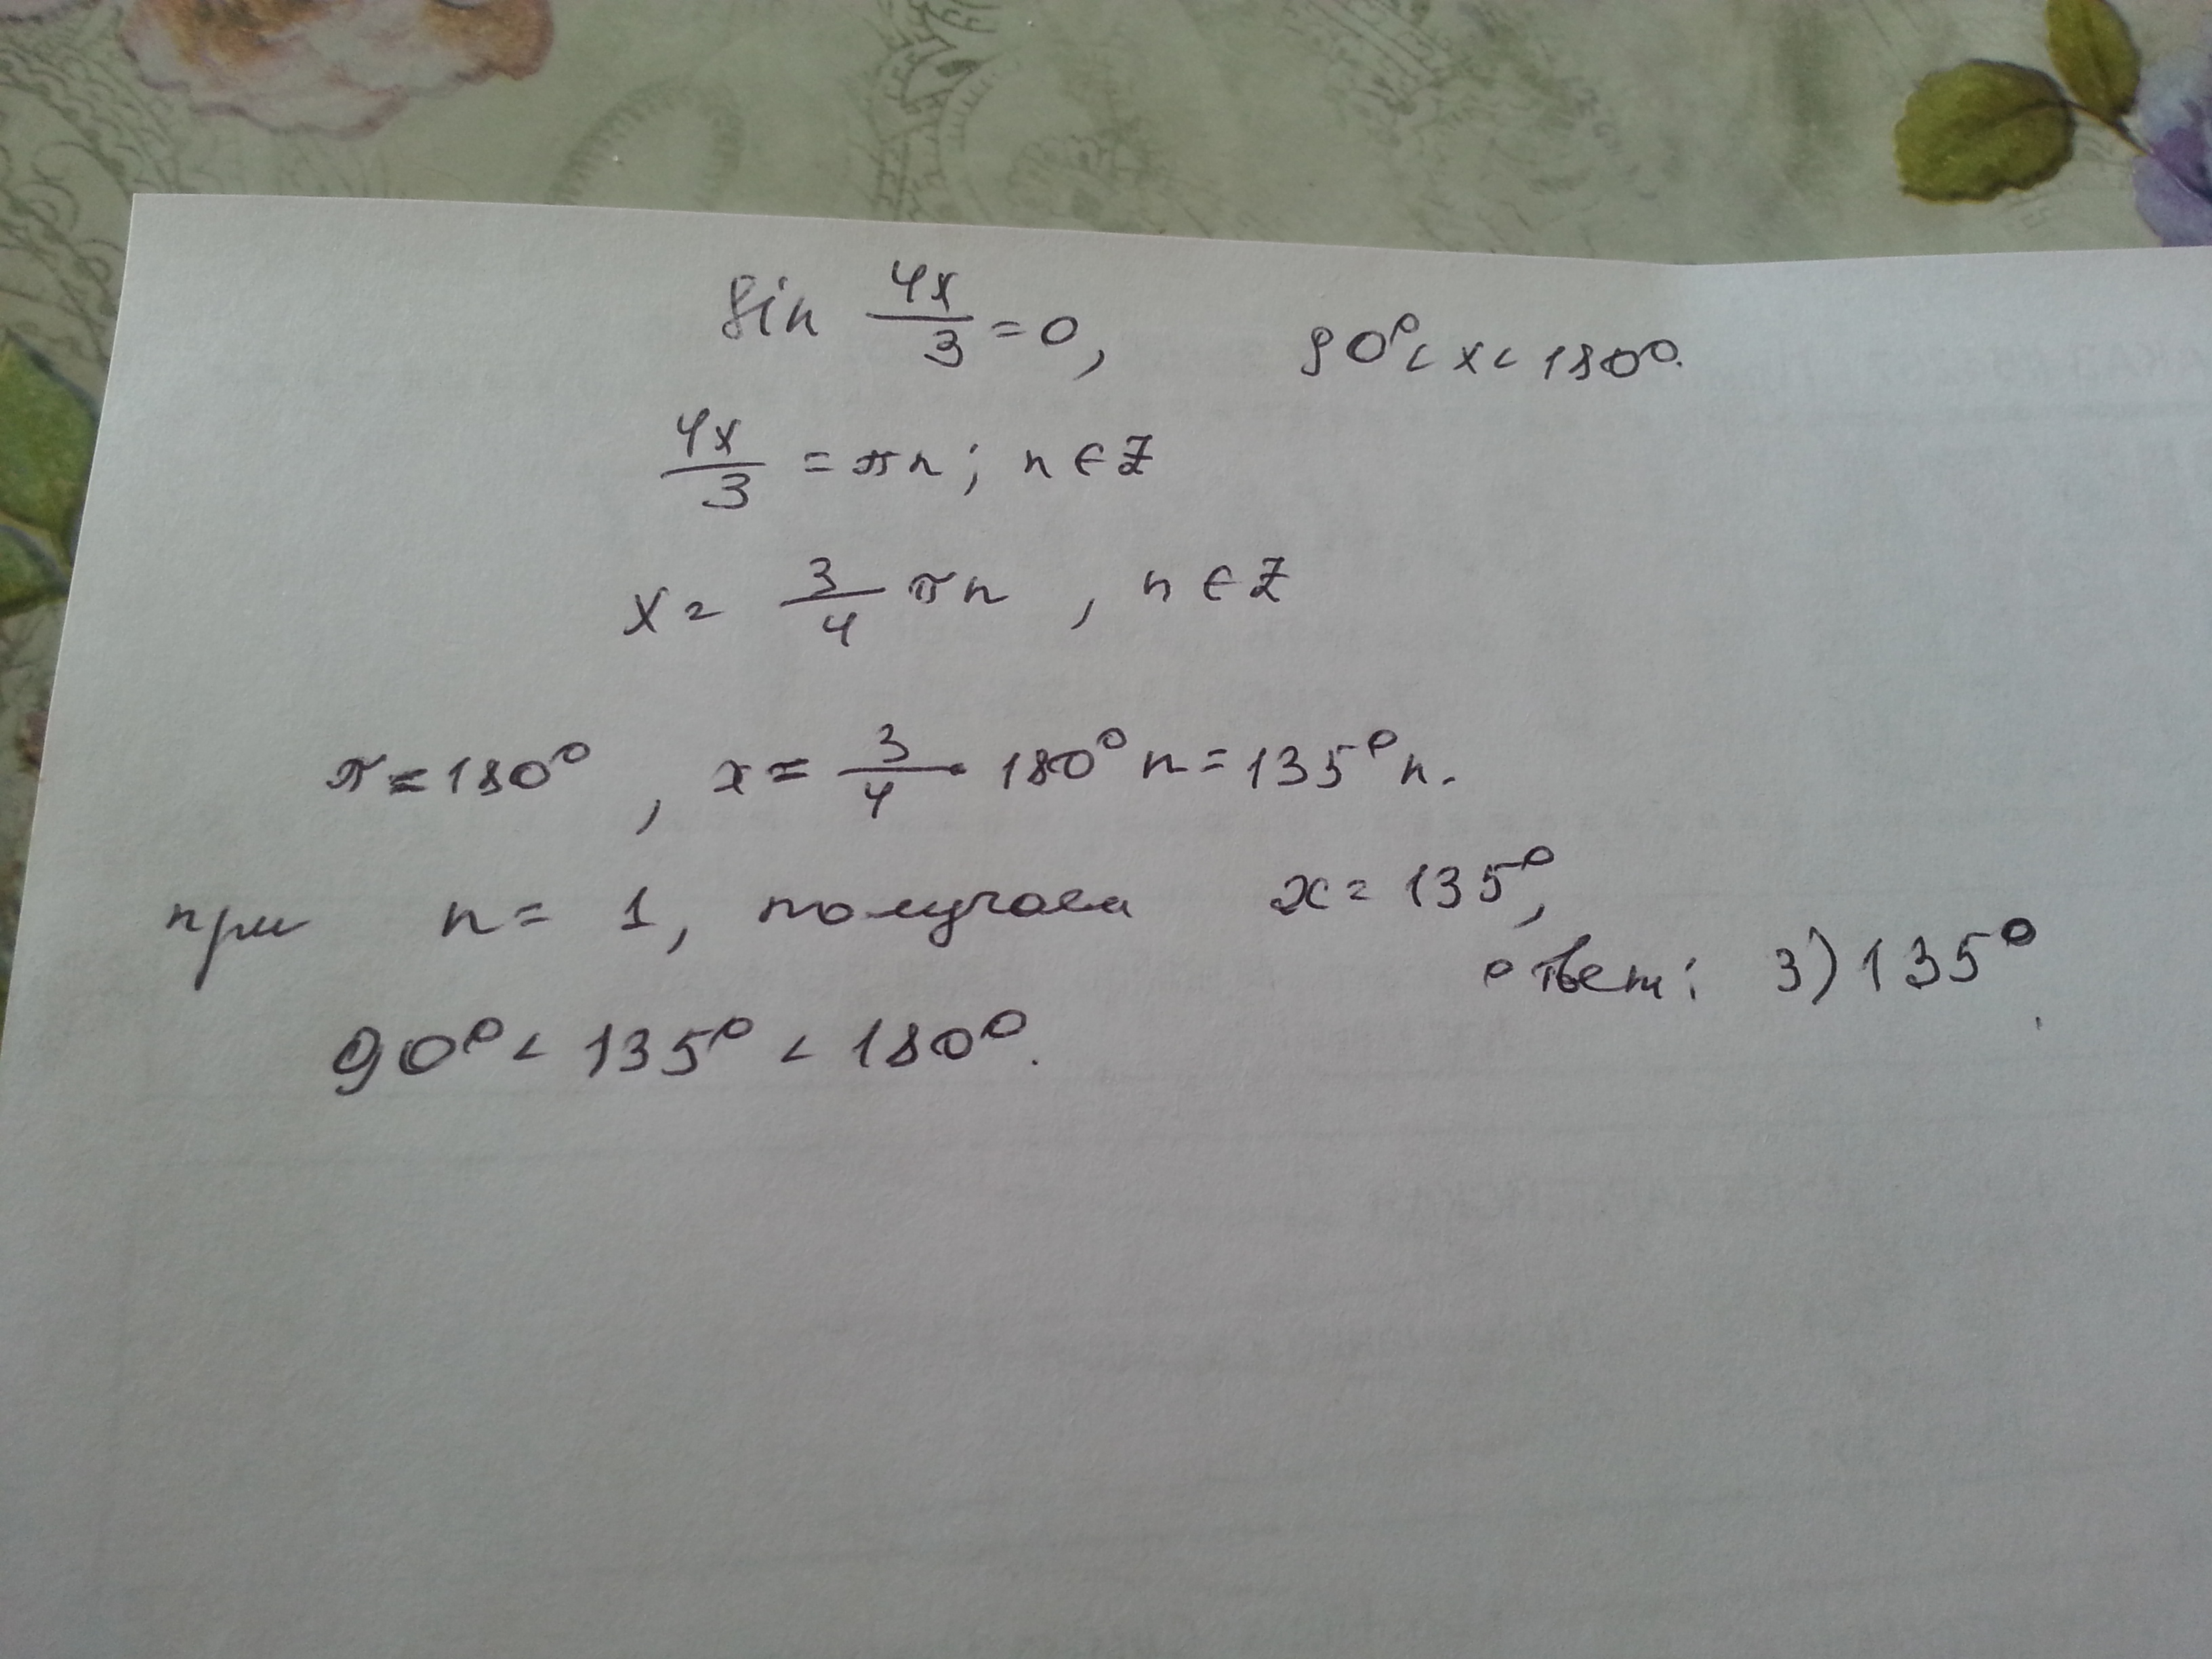 sin 4x/3 = 0, 90° < x < 180°.
4x/3 = πn; n ∈ Z
x = 3/4 πn, n ∈ Z
π = 180°, x = 3/4 · 180° n = 135° n.
при n = 1, получаем x = 135°,
ответ: 3) 135°.
90° < 135° < 180°.